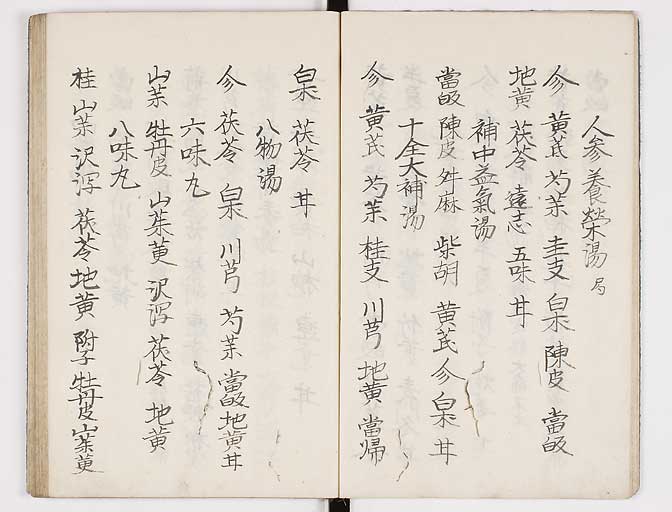 人参養榮湯 局
参 黄芪 芍薬 圭支 白朮 陳皮 當皈
地黄 茯苓 遠志 五味 甘
補中益氣湯
當皈 陳皮 舛麻 柴胡 黄芪 参 白朮 甘
十全大補湯
参 黄芪 芍薬 桂支 川芎 地黄 當帰
白朮 茯苓 甘
八物湯
参 茯苓 白朮 川芎 芍薬 當皈 地黄 甘
六味丸
山薬 牡丹皮 山茱萸 沢瀉 茯苓 地黄
八味丸
桂 山薬 沢瀉 茯苓 地黄 附子 牡丹皮 山茱萸